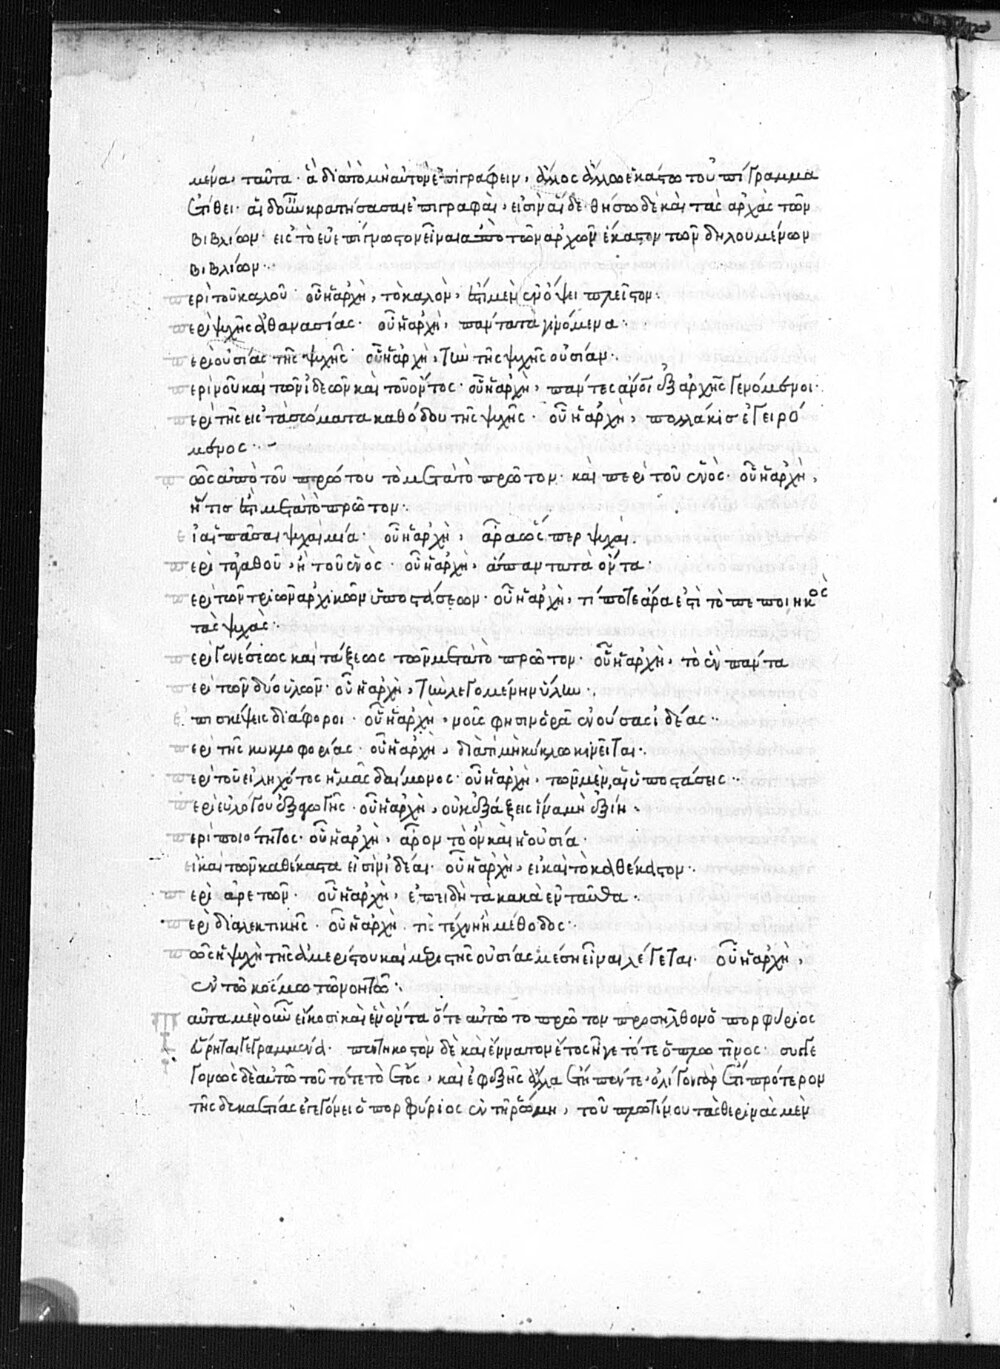 μενα· ταῦτα· ἃ διὰ τὸ μὴ αὐτὸν ἐπιγράφειν, ἄλλος ἄλλο ἑκάστω τοὐπίγραμμα
ἐτίθει· αἱ δ' οὖν κρατήσασαι ἐπιγραφαὶ, εἰσὶν αἵδε· θήσω δὲ καὶ τὰς ἀρχὰς τῶν
βιβλίων· εἰς τὸ εὐεπίγνωστον εἶναι ἀπὸ τῶν ἀρχῶν ἕκαστον τῶν δηλουμένων
βιβλίων·
περὶ τοῦ καλοῦ· οὗ ἡ ἀρχὴ, τὸ καλὸν, ἔστι μὲν ἐν ὄψει πλεῖστον·
περὶ ψυχῆς ἀθανασίας· οὗ ἡ ἀρχὴ, πάντα τὰ γινόμενα·
περὶ οὐσίας τῆς ψυχῆς· οὗ ἡ ἀρχὴ, τὴν τῆς ψυχῆς οὐσίαν·
περὶ νοῦ καὶ τῶν ἰδεῶν καὶ τοῦ ὄντος· οὗ ἡ ἀρχὴ, πάντες ἄνοι ἐξ ἀρχῆς γενόμενοι·
περὶ τῆς εἰς τὰ σώματα καθόδου τῆς ψυχῆς· οὗ ἡ ἀρχὴ, πολλάκις ἐγειρό
μενος·
πῶς ἀπὸ τοῦ πρώτου τὸ μετὰ τὸ πρῶτον· καὶ περὶ τοῦ ἑνὸς· οὗ ἡ ἀρχὴ,
εἴ τι ἔστι μετὰ τὸ πρῶτον·
εἰ αἱ πᾶσαι ψυχαὶ μία· οὗ ἡ ἀρχὴ, ἆρα ὥσπερ ψυχαὶ.
περὶ τἀγαθοῦ, ἢ τοῦ ἑνὸς· οὗ ἡ ἀρχὴ, ἅπαντα τὰ ὄντα·
περὶ τῶν τριῶν ἀρχικῶν ὑποστάσεων· οὗ ἡ ἀρχὴ, τί ποτε ἄρα ἐστὶ τὸ πεποιηκὸς
τὰς ψυχὰς·
περὶ γενέσεως καὶ τάξεως τῶν μετὰ τὸ πρῶτον· οὗ ἡ ἀρχὴ, τὸ ἓν πάντα
περὶ τῶν δύο ὑλῶν· οὗ ἡ ἀρχὴ, τὴν λεγομένην ὕλην·
ἐπισκέψεις διάφοροι· οὗ ἡ ἀρχὴ, νοῦς φησιν ὁρᾶ ἐνούσας ἰδέας·
περὶ τῆς κυκλοφορίας· οὗ ἡ ἀρχὴ, διὰ τί μὴ κύκλω κινεῖται·
περὶ τοῦ εἰληχότος ἡμᾶς δαίμονος· οὗ ἡ ἀρχὴ, τῶν μὲν, αἱ ὑποστάσεις·
περὶ εὐλόγου ἐξαγωγῆς· οὗ ἡ ἀρχὴ, οὐκ ἐξάξεις ἵνα μὴ ἐξίη·
περὶ ποιότητος· οὗ ἡ ἀρχὴ, ἆρον τὸ ὂν καὶ ἡ οὐσία·
εἰ καὶ τῶν καθέκαστα εἰσὶν ἰδέαι· οὗ ἡ ἀρχὴ, εἰ καὶ τὸ καθέκαστον·
περὶ ἀρετῶν· οὗ ἡ ἀρχὴ, ἐπειδὴ τὰ κακὰ ἐνταῦθα·
περὶ διαλεκτικῆς· οὗ ἡ ἀρχὴ τὶς τέχνη ἢ μέθοδος·
πῶς ἡ ψυχὴ τῆς ἀμερίστου καὶ μεριστῆς οὐσίας μέση εἶναι λέγεται· οὗ ἡ ἀρχὴ,
ἐν τῶ κόσμω τῶ νοητῶ·
ταῦτα μὲν οὖν εἴκοσι καὶ ἓν ὄντα ὅτε αὐτῶ τὸ πρῶτον προσῆλθον ὁ πορφύριος
εὕρηται γεγραμμένα· πεντηκοστὸν δὲ καὶ ἔννατον ἔτος ἦγε τότε ὁ πλωτῖνος· συγγε
γονὼς δὲ αὐτῶ τοῦτό τε τὸ ἔτος, καὶ ἐφεξῆς ἄλλα ἔτη πέντε· ὀλίγον γὰρ ἔτι πρότερον
τῆς δεκαετίας ἐγεγόνει ὁ πορφύριος ἐν τῆ ῥώμη, τοῦ πλωτίνου τὰς θερινὰς μὲν